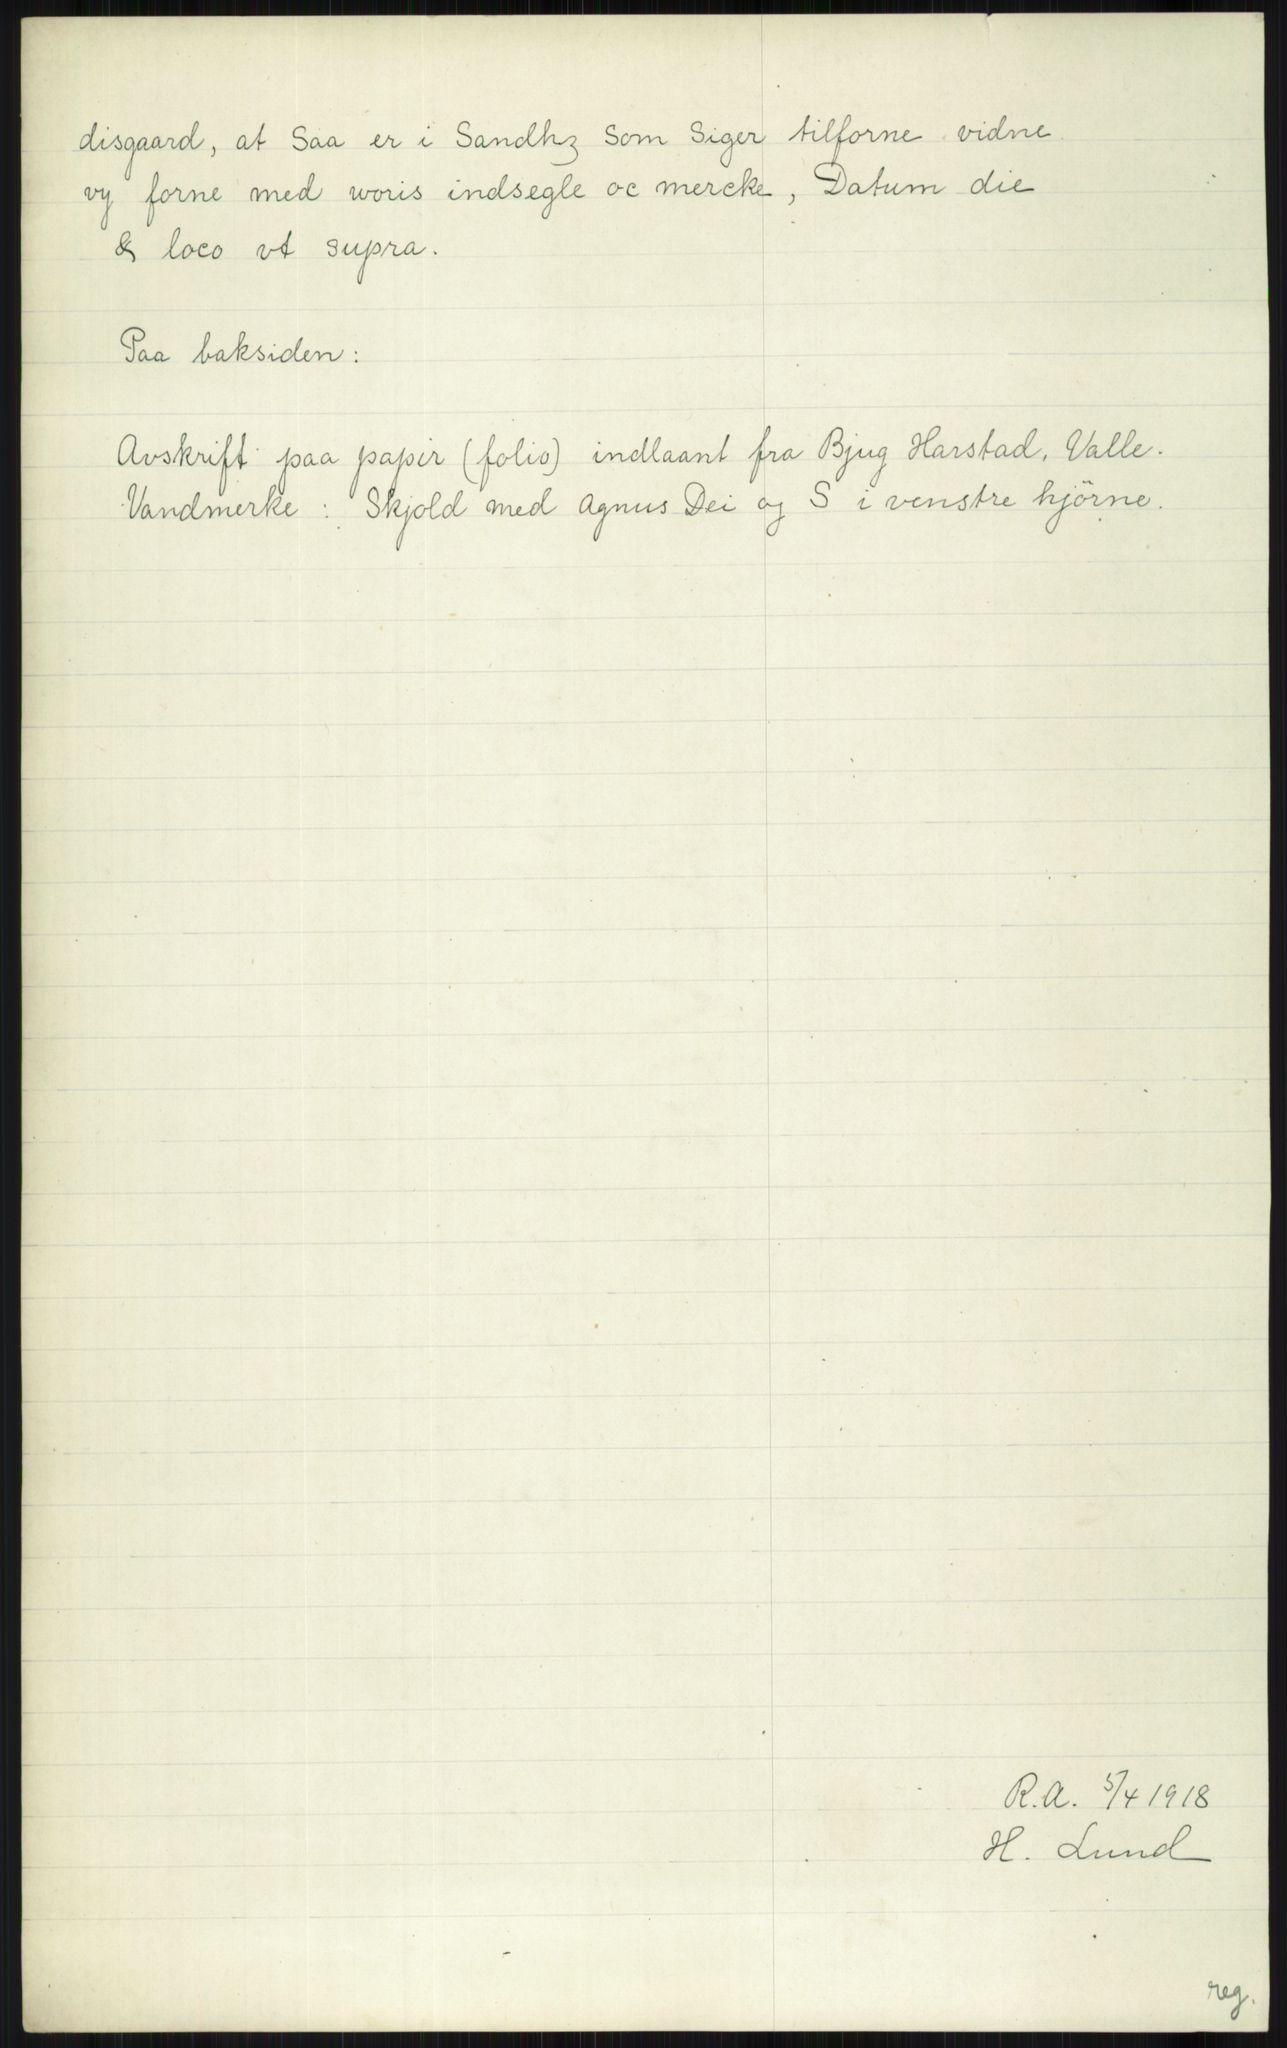 disgaard, at Saa er i Sandhz Som Siger tilforne vidne
vy forne med woris indsegle oc mercke, Datum die
& loco vt supra.
Paa baksiden:
Avskrift paa papir (folio) indlaant fra Bjug Harstad, Valle.
Vandmerke: Skjold med Agnus Dei og S i venstre hjörne.
R.A. 5/4 1918
H. Lund
reg.